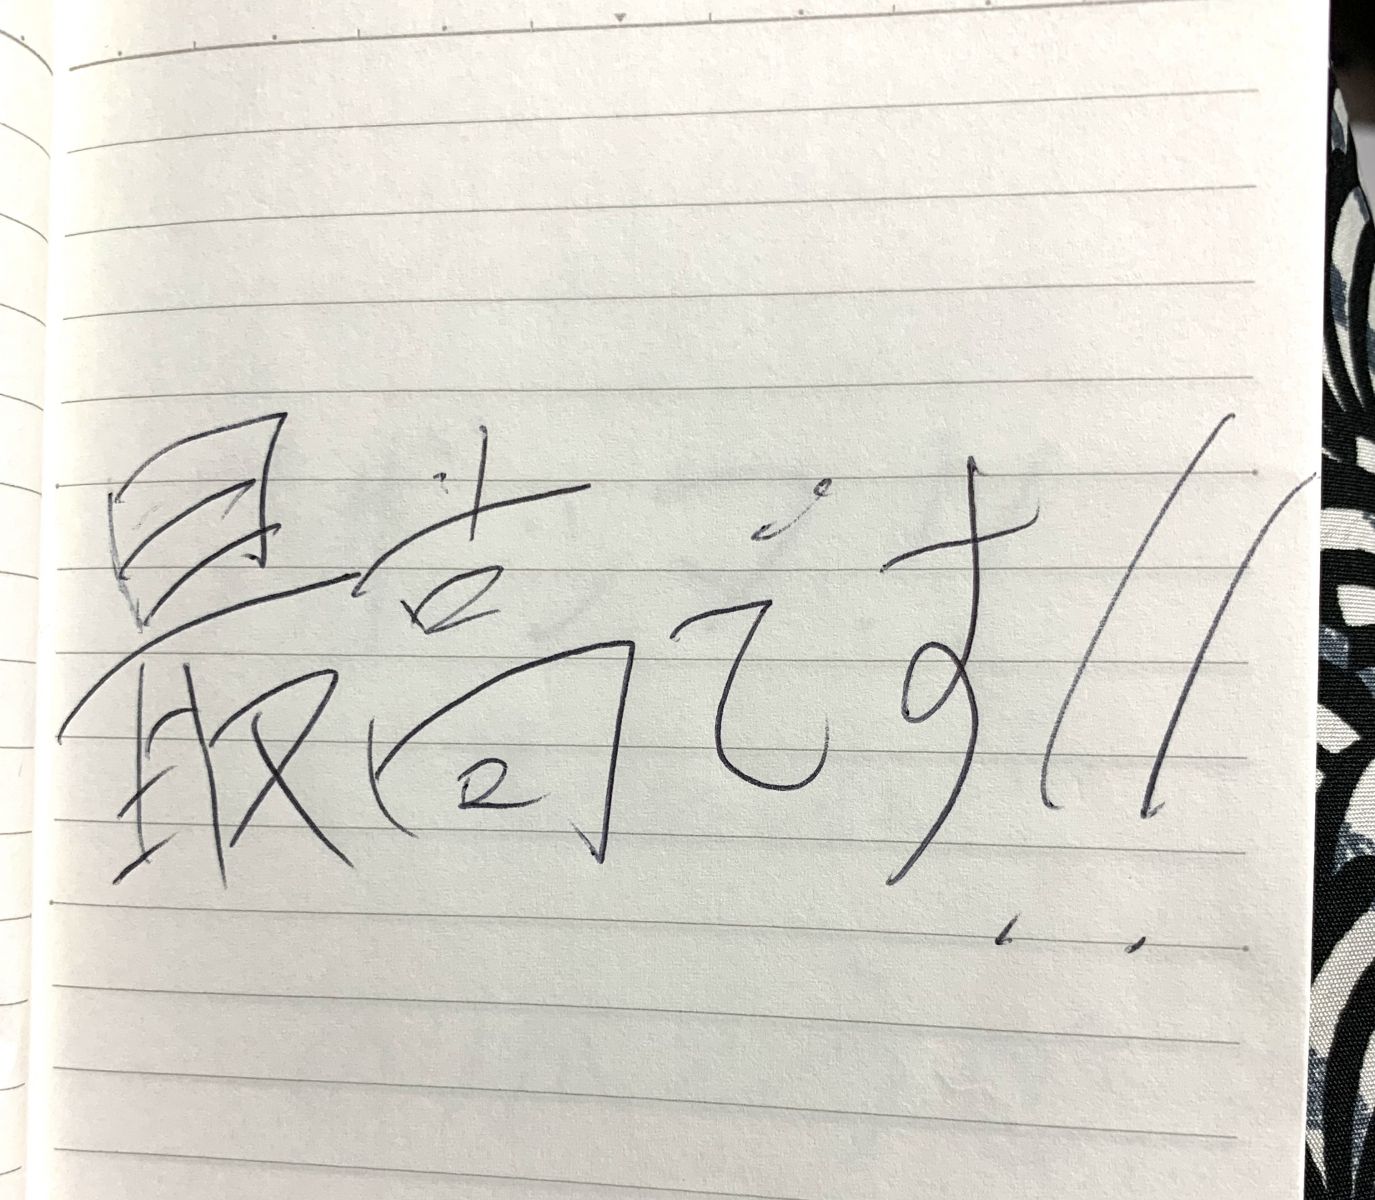 最高です!!